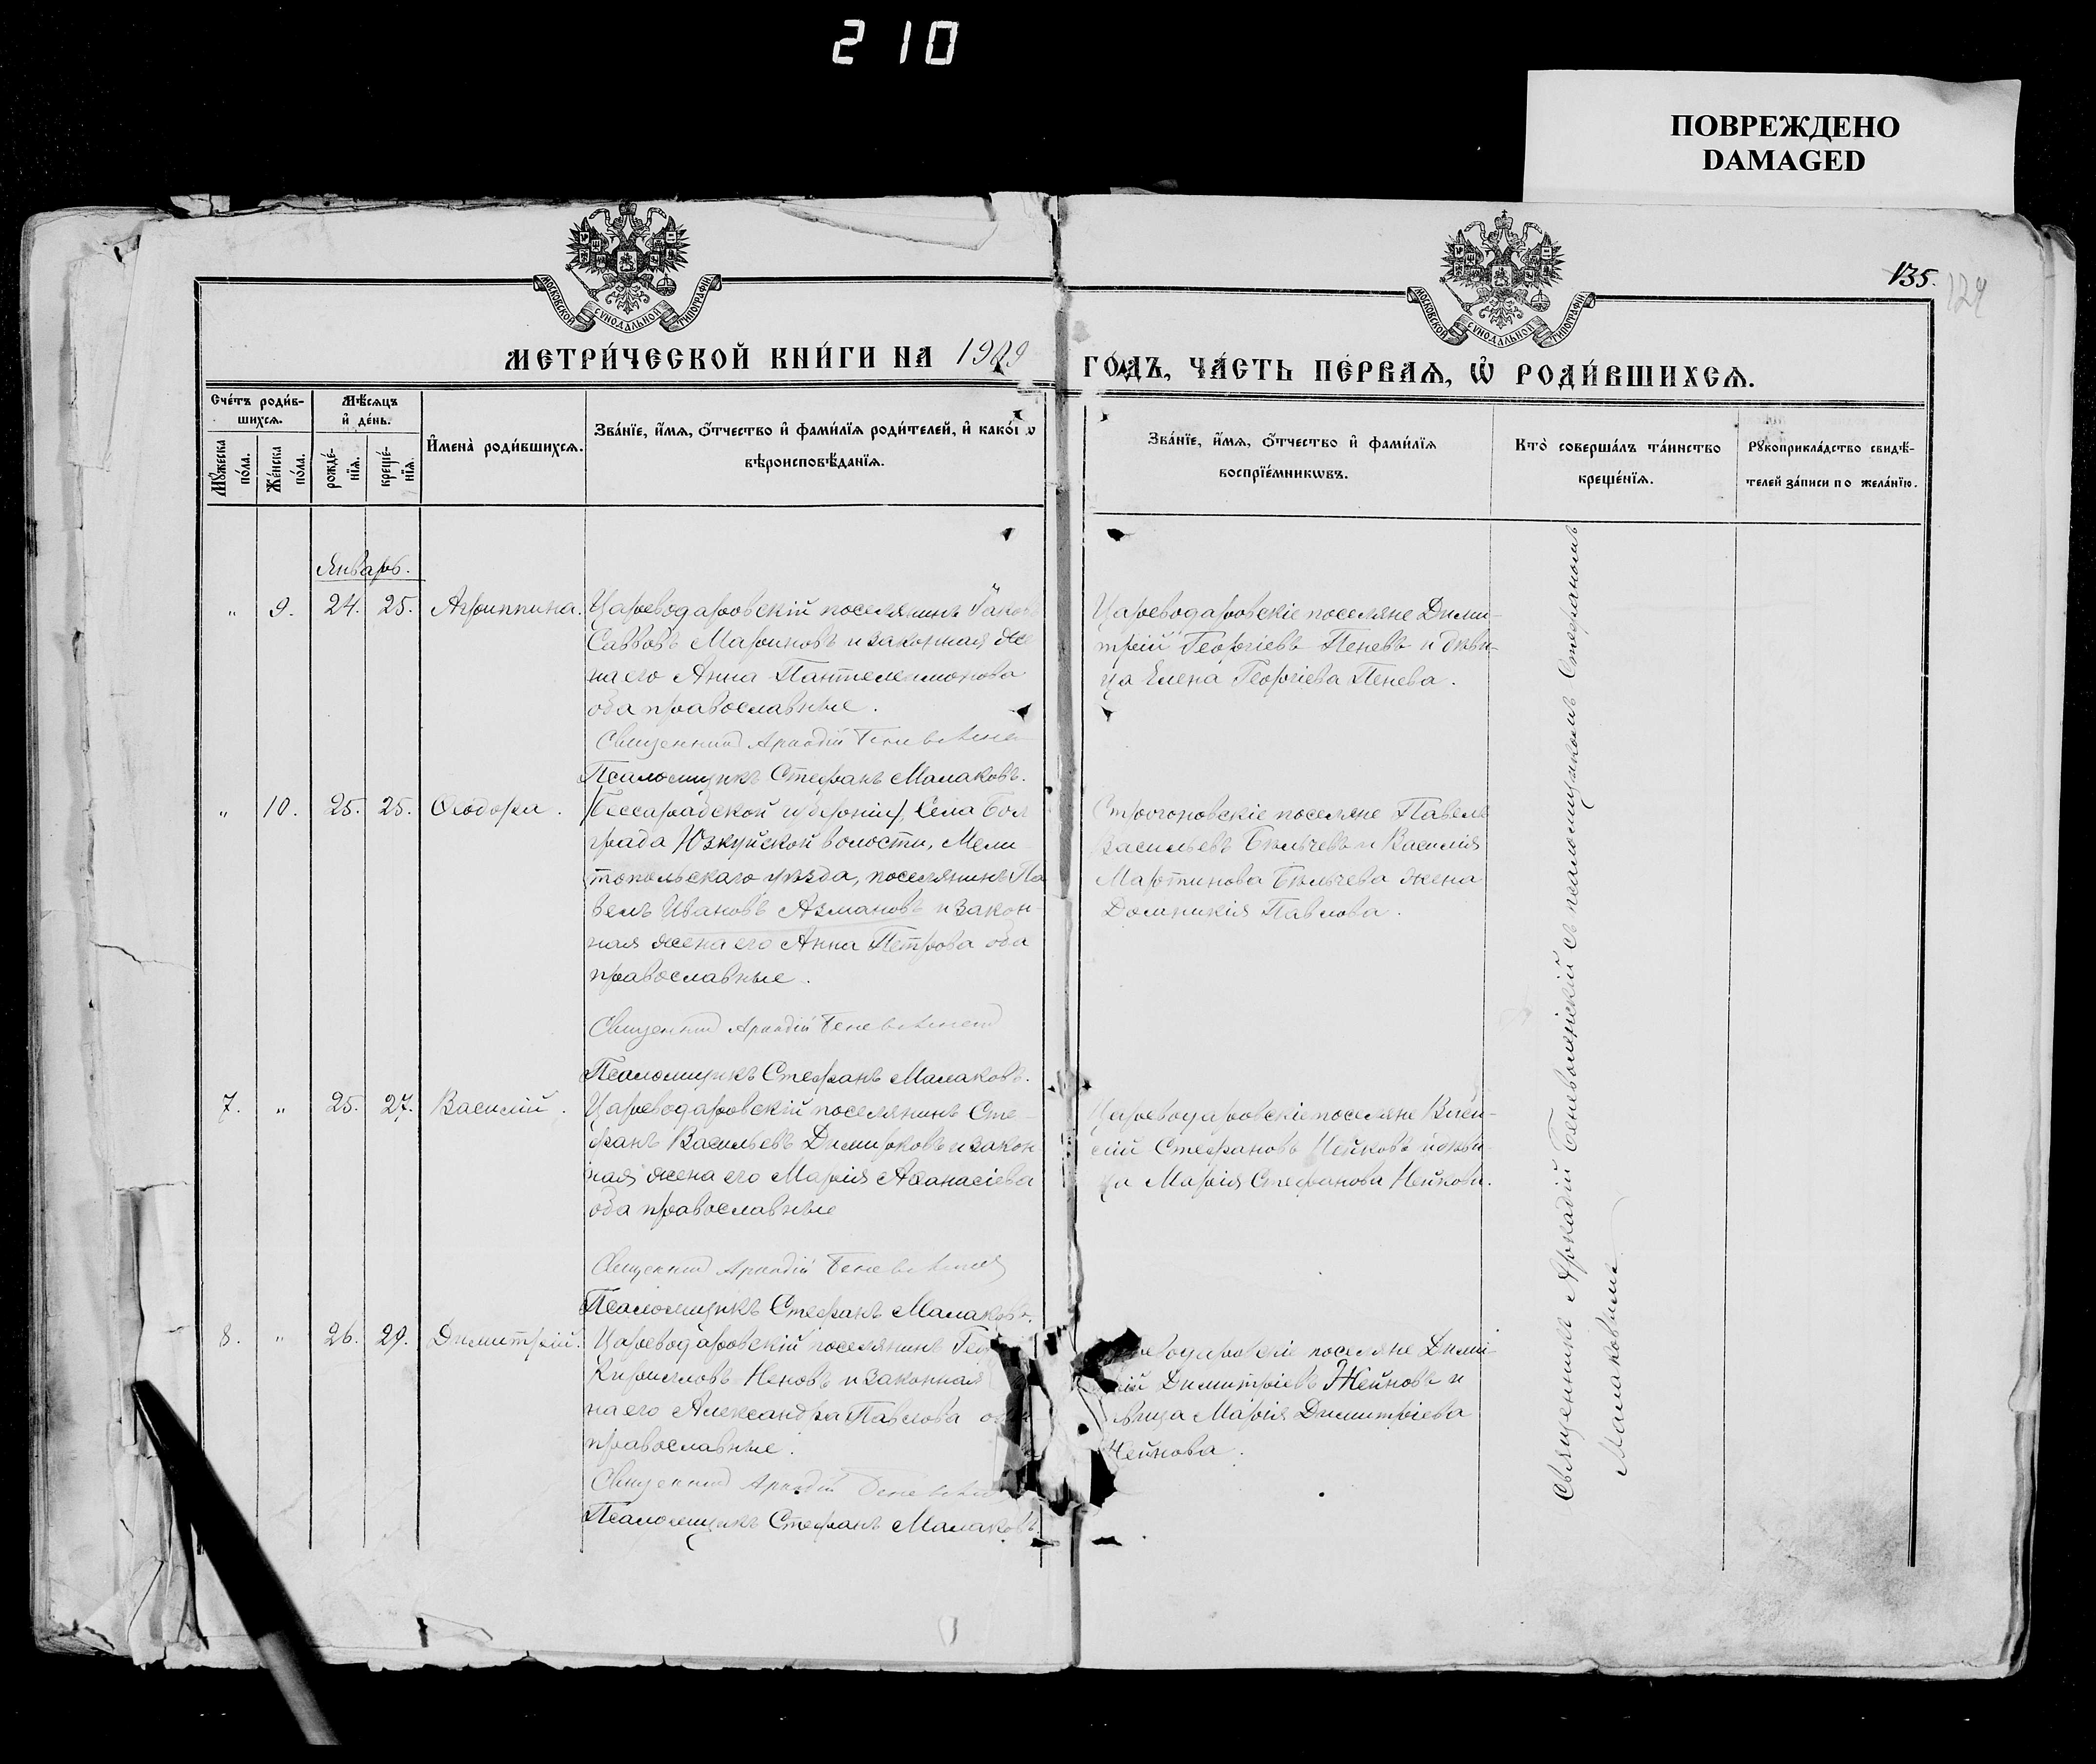 210
ПОВРЕЖДЕНО
DAMAGED
135.
129
МОСКОВСКОЙ СѴНОДАЛЬНОЙ ТИПОГРАФІИ
МОСКОВСКОЙ СѴНОДАЛЬНОЙ ТИПОГРАФІИ
МЕТРИ́ЧЕСКОЙ КНИ́ГИ НА 1909 ГО́ДЪ, ЧА́СТЬ ПЕ́РВАѦ, Ѡ҆ РОДИ́ВШИХСѦ.
Сче́тъ роди́в-
шихсѧ.
Мꙋ́жеска
по́ла.
Же́нска
по́ла.
Мѣ́сѧцъ
и҆ де́нь.
рожде́-
нїѧ.
креще́-
нїѧ.
И҆мена̀ роди́вшихсѧ.
Зва́нїе, и҆́мѧ, ѻ҆́тчество и҆ фами́лїѧ роди́телей, и҆ како́гѡ
вѣроисповѣ́данїѧ.
Зва́нїе, и҆́мѧ, ѻ҆́тчество и҆ фами́лїѧ
воспрїе́мникѡвъ.
Кто̀ соверша́лъ та́инство
креще́нїѧ.
Рꙋкоприкла́дство свидѣ́-
телей за́писи по жела́нїю.
Январь.
" 9. 24. 25. Агриппина.
Цареводаровскій поселянинъ
Савовъ Мариновъ и законная же
на его Анна Пантелеимонова
оба православные.
Священникъ Аркадій
Псаломщикъ Стефанъ Малаковъ.
Цареводаровскіе поселяне Дими-
трій Георгіевъ Пеневъ и дѣви-
ца Елена Георгіева Пенева.
" 10. 25. 25. Ѳеодора.
/Бессарабской губерніи/, Села Бол
града Юзкуйской волости, Мели
топольскаго уѣзда, поселянинъ Па
велъ Ивановъ Азмановъ и закон-
ная жена его Анна Петрова оба
православные.
Священникъ Аркадій
Псаломщикъ Стефанъ Малаковъ.
Строгоновскіе поселяне Павелъ
Васильевъ Бѣльчевъ и Василія
Мартинова Бѣльчева жена
Домникія Павлова.
7. " 25. 27. Василій.
Цареводаровскій поселянинъ Сте-
фанъ Васильевъ Димирковъ и закон
ная жена его Марія Аѳанасіева
оба православные
Священникъ Аркадій
Псаломщикъ Стефанъ Малаковъ.
Цареводаровскіе поселяне Васи-
лій Стефановъ Нейковъ и дѣви-
ца Марія Стефанова Нейкова.
8. " 26. 29. Димитрій.
Цареводаровскій поселянинъ Гео
Кирилловъ Неновъ и законная
на его Александра Павлова оба
православные.
Священникъ Аркадій
Псаломщикъ Стефанъ Малаковъ.
еводаровскіе поселяне Дими-
рій Димитріевъ Жейновъ и
вица Марія Димитріева
Жейнова.
Священникъ Аркадій Беневоленскій съ псаломщикомъ Стефаномъ
Малаковымъ.